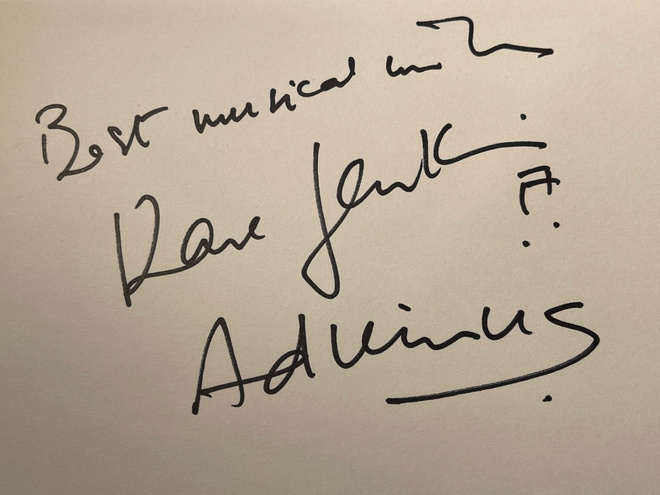 Best musical wishes
Karl Jenkins
Adiemus